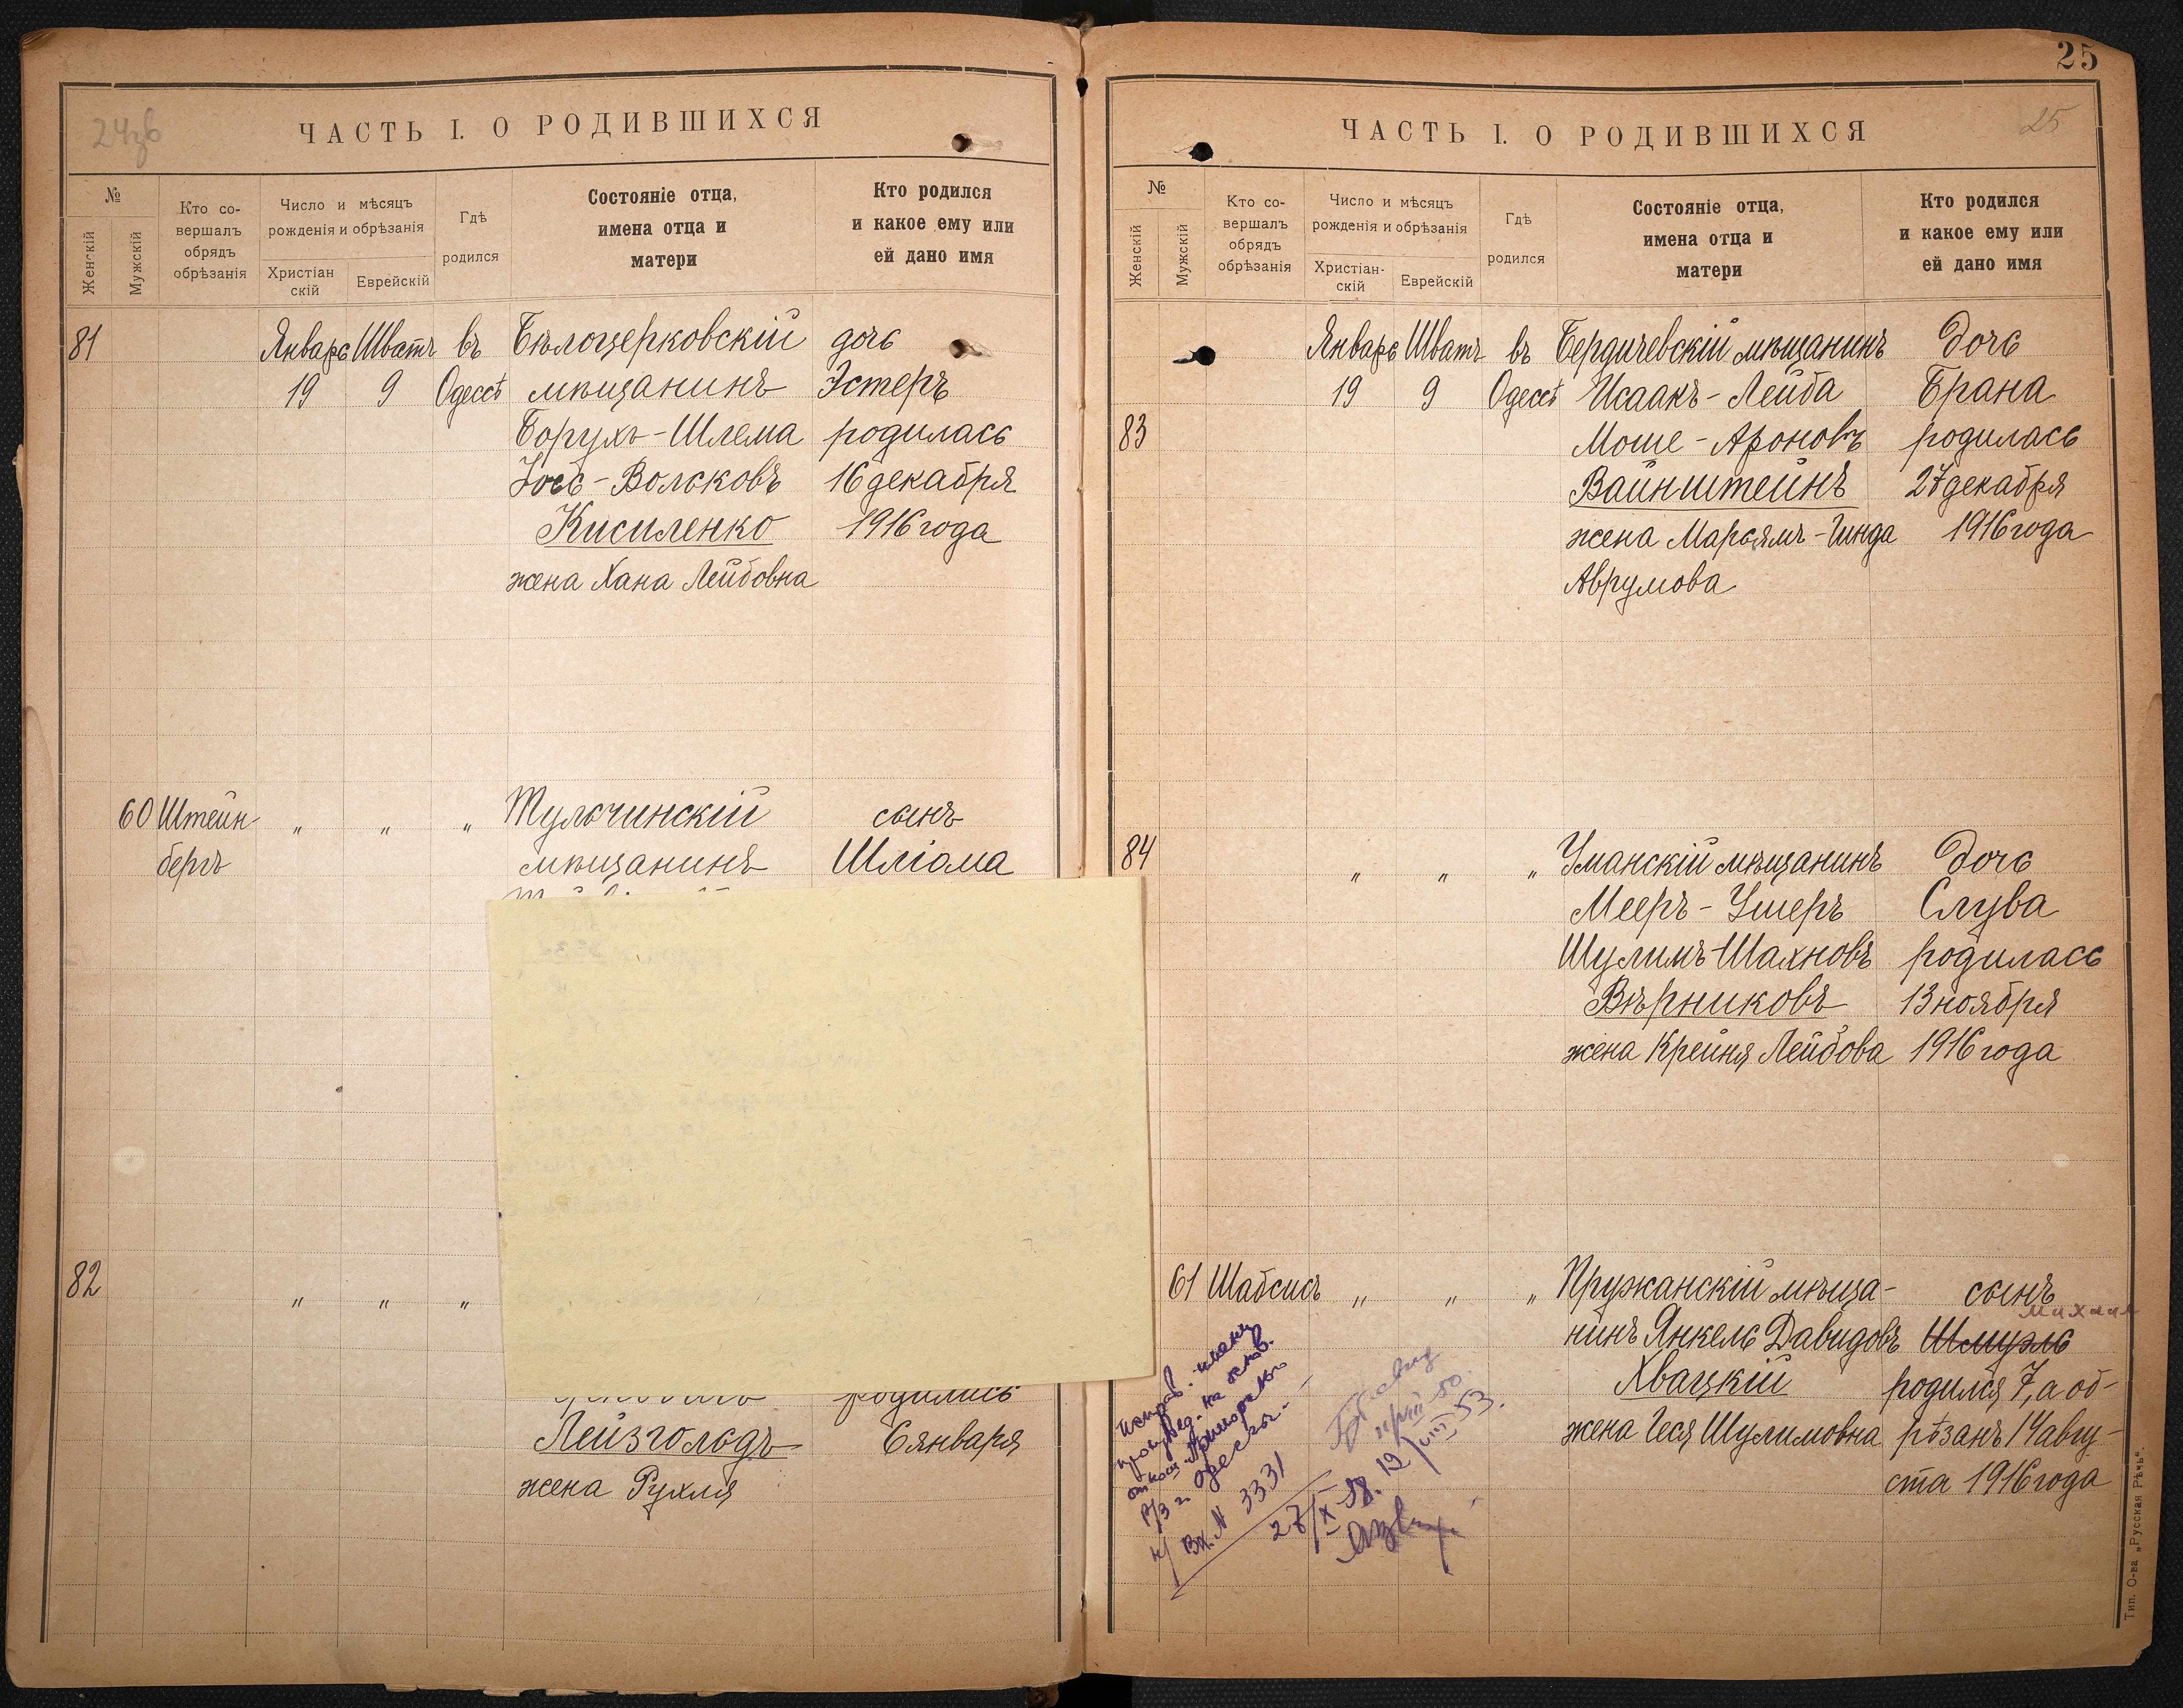 24зв
ЧАСТЬ I. О РОДИВШИХСЯ
№
Женскій
Мужскій
Кто со-
вершалъ
обрядъ
обрѣзанія
Число и мѣсяцъ
рожденія и обрѣзанія
Христіан
скій
Еврейскій
Гдѣ
родился
Состояніе отца,
имена отца и
матери
Кто родился
и какое ему или
ей дано имя
81 Январь Шватъ въ Бѣлоцерковскій дочь
19 9 Одессѣ мѣщанинъ Эстеръ
Борухъ-Шлема родилась
Іось-Волековъ 16 декабря
Кисиленко 1916 года
жена Хана Лейбовна
60 Штейн- „ „ „ Тульчинскій сынъ
бергъ мѣщанинъ Шліома
82 „ „ „
родились
Лейзгольдъ 6 января
жена Рухля
25
25
ЧАСТЬ I. О РОДИВШИХСЯ
№
Женскій
Мужскій
Кто со-
вершалъ
обрядъ
обрѣзанія
Число и мѣсяцъ
рожденія и обрѣзанія
Христіан-
скій
Еврейскій
Гдѣ
родился
Состояніе отца,
имена отца и
матери
Кто родился
и какое ему или
ей дано имя
Январь Шватъ въ Бердичевскій мѣщанинъ Дочь
19 9 Одессѣ Исаакъ-Лейба Брана
83 Моше-Ароновъ родилась
Вайнштейнъ 27 декабря
жена Марьямъ-Гинда 1916 года
Аврумова
84 „ „ „ Уманскій мѣщанинъ Дочь
Мееръ-Ушеръ Слува
Шулимъ-Шахновъ родилась
Вѣрниковъ 13 ноября
жена Крейня Лейбова 1916 года
61 Шабсисъ „ „ „ Пружанскій мѣща- сынъ
Михаил
нинъ Янкель Давидовъ Шмуэль
Хвацкій родился 7, а об-
жена Геся Шулимовна рѣзанъ 14 авгу-
ста 1916 года
Исправ. имени
на основ.
Вх. N 3331
27/X-58.
Тип. О-ва „Русская Рѣчь“.